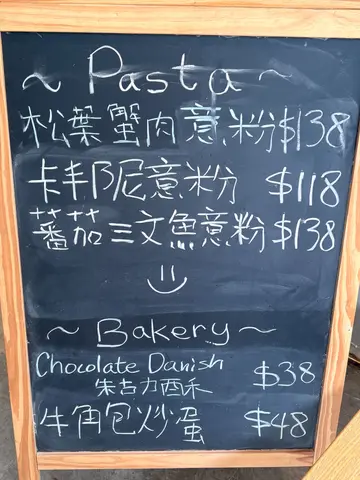 ~ Pasta ~
松葉蟹肉意粉$138
卡丰阝尼意粉 $118
蕃茄三文魚意粉$138
~ Bakery ~
Chocolate Danish $38
朱古力酉禾
牛角包炒蛋 $48